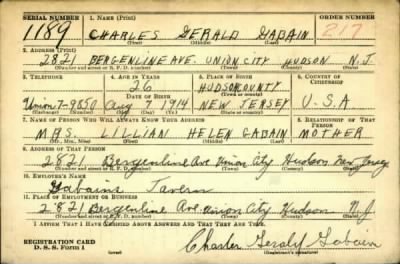 SERIAL NUMBER 1. NAME (Print) ORDER NUMBER
1189 CHARLES GERALD GABAIN 217
(First) (Middle) (Last)
2. ADDRESS (Print)
2821 BERGENLINE AVE. UNION CITY HUDSON N.J.
(Number and street or R. F. D. number) (Town) (County) (State)
3. TELEPHONE 4. AGE IN YEARS 5. PLACE OF BIRTH 6. COUNTRY OF CITIZENSHIP
26 HUDSON COUNTY
DATE OF BIRTH (Town or county)
Union 7-9850 Aug 7 1914 NEW JERSEY U.S.A
(Exchange) (Number) (Mo.) (Day) (Yr.) (State or country)
7. NAME OF PERSON WHO WILL ALWAYS KNOW YOUR ADDRESS 8. RELATIONSHIP OF THAT PERSON
MRS. LILLIAN HELEN GABAIN MOTHER
(Mr., Mrs., Miss) (First) (Middle) (Last)
9. ADDRESS OF THAT PERSON
2821 Bergenline Ave Union City Hudson New Jersey
(Number and street or R. F. D. number) (Town) (County) (State)
10. EMPLOYER'S NAME
Gabains Tavern
11. PLACE OF EMPLOYMENT OR BUSINESS
2821 Bergenline Ave. Union City Hudson N.J.
(Number and street or R. F. D. number) (Town) (County) (State)
I AFFIRM THAT I HAVE VERIFIED ABOVE ANSWERS AND THAT THEY ARE TRUE.
REGISTRATION CARD
D. S. S. Form 1 Charles Gerald Gabain
(Registrant's signature)